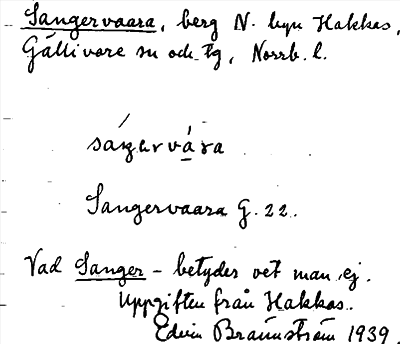 Sangervaara, berg N. byn Hakkas,
Gällivare sn och tg, Norrb. l.
sáŋervàra
Sangervaara G. 22.
Vad Sanger – betyder vet man ej.
Uppgiften från Hakkas.
Edvin Brännström 1939.